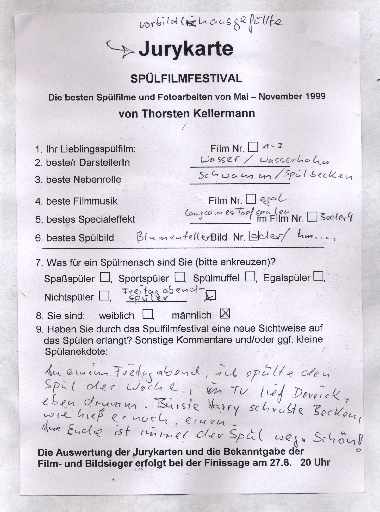 vorbildlich ausgefüllte
Jurykarte
SPÜLFILMFESTIVAL
Die besten Spülfilme und Fotoarbeiten von Mai – November 1999
von Thorsten Kellermann
1. Ihr Lieblingsspülfilm: Film Nr. 1-2
2. beste/r DarstellerIn Wasser / Wasserhahn
3. beste Nebenrolle Schwamm / Spülbecken
4. beste Filmmusik Film Nr. egal
5. bestes Specialeffekt langsames im Film Nr.
6. bestes Spülbild Blumenteller Bild Nr. oder / hm....,
7. Was für ein Spülmensch sind Sie (bitte ankreuzen)?
Spaßspüler , Sportspüler , Spülmuffel , Egalspüler ,
Nichtspüler , Freitagabend-
spüler
8. Sie sind: weiblich männlich
9. Haben Sie durch das Spülfilmfestival eine neue Sichtweise auf
das Spülen erlangt? Sonstige Kommentare und/oder ggf. kleine
Spülanekdote:
An einem Freitagabend, ich spülte den
Spül der Woche, im TV lief Derrick,
eben drumm. Harry schrubte Becken,
wie hieß er noch, einen
Ende ist immer der Spül weg. Schön!
Die Auswertung der Jurykarten und die Bekanntgabe der
Film- und Bildsieger erfolgt bei der Finissage am 27.6. 20 Uhr